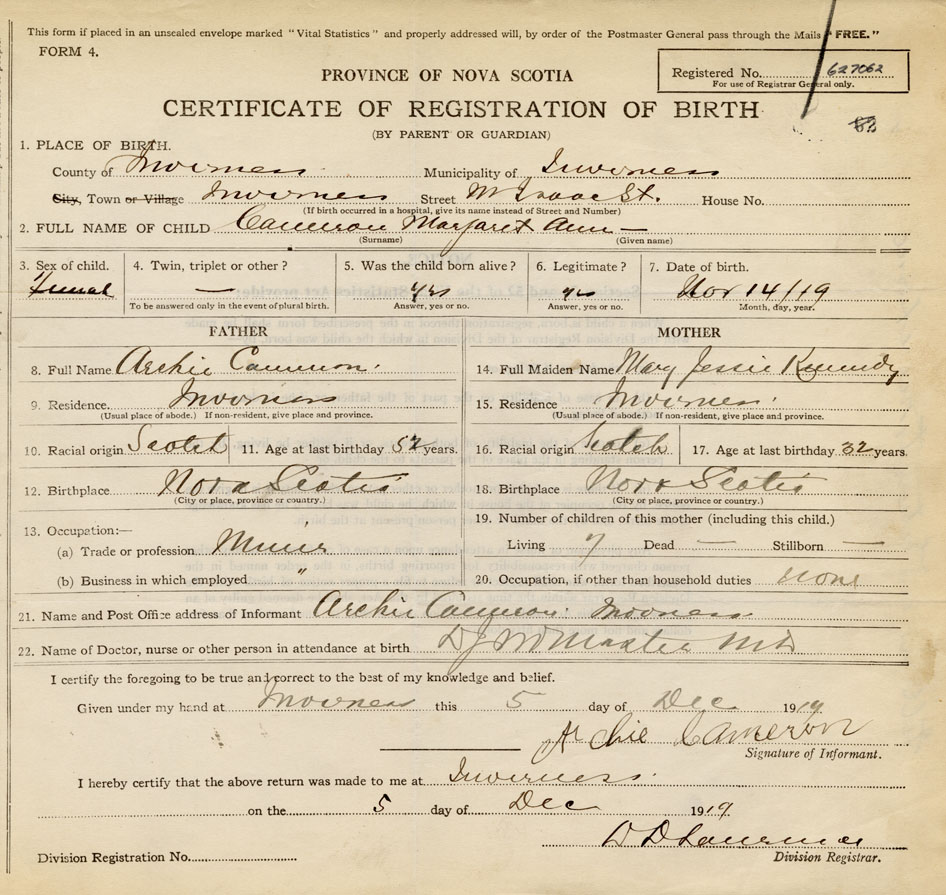 This form if placed in an unsealed envelope marked "Vital Statistics" and properly addressed will, by order of the Postmaster General pass through the Mails "FREE."
FORM 4.
PROVINCE OF NOVA SCOTIA
Registered No. 627062
For use of Registrar General only.
CERTIFICATE OF REGISTRATION OF BIRTH
(BY PARENT OR GUARDIAN)
1. PLACE OF BIRTH.
County of Inverness Municipality of Inverness
City, Town or Village Inverness Street McIsaac St. House No.
(If birth occurred in a hospital, give its name instead of Street and Number)
2. FULL NAME OF CHILD Cameron Margaret Ann —
(Surname) (Given name)
3. Sex of child. 4. Twin, triplet or other? 5. Was the child born alive? 6. Legitimate? 7. Date of birth.
Femal — yes yes Nov 14/19
To be answered only in the event of plural birth. Answer, yes or no. Answer, yes or no. Month, day, year.
FATHER MOTHER
8. Full Name Archie Cameron. 14. Full Maiden Name Mary Jessie Kennedy
9. Residence. Inverness 15. Residence Inverness.
(Usual place of abode.) If non-resident, give place and province. (Usual place of abode.) If non-resident, give place and province.
10. Racial origin Scotch 11. Age at last birthday 52 years. 16. Racial origin Scotch 17. Age at last birthday 32 years.
12. Birthplace Nova Scotia 18. Birthplace Nova Scotia
(City or place, province or country.) (City or place, province or country.)
13. Occupation:— 19. Number of children of this mother (including this child.)
(a) Trade or profession Miner Living 7 Dead — Stillborn —
(b) Business in which employed " 20. Occupation, if other than household duties none
21. Name and Post Office address of Informant Archie Cameron. Inverness
22. Name of Doctor, nurse or other person in attendance at birth MD
I certify the foregoing to be true and correct to the best of my knowledge and belief.
Given under my hand at Inverness this 5 day of Dec 1919
Archie Cameron
Signature of Informant.
I hereby certify that the above return was made to me at Inverness.
on the 5 day of Dec 1919
Division Registration No. Division Registrar.